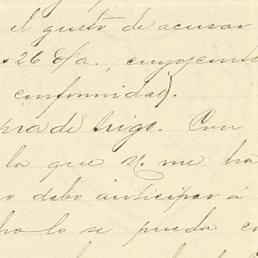 el gusto de acusar
26 d/a.
conformidad).
pra de trigo. Con
la que V. me ha
o debo anticipar á
lo se pueda